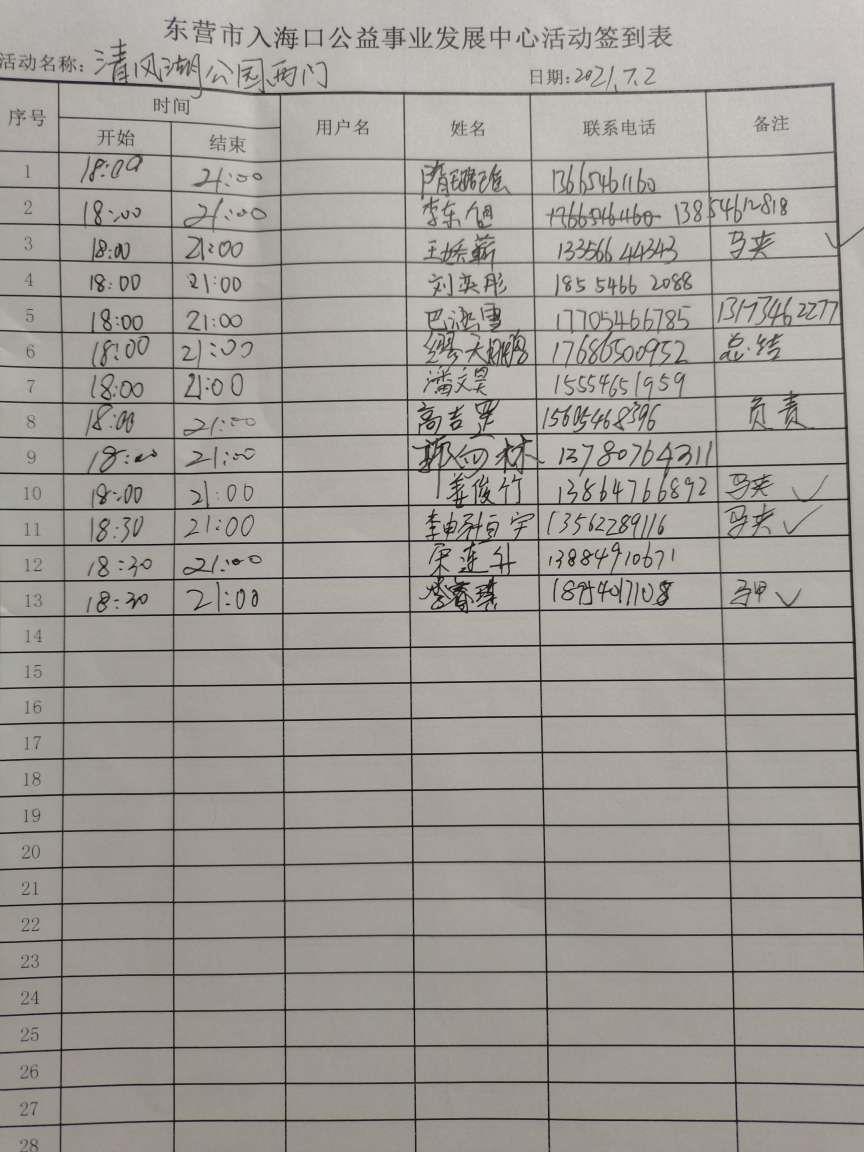 东营市入海口公益事业发展中心活动签到表
活动名称：清风湖公园西门 日期：2021.7.2
序号 时间 用户名 姓名 联系电话 备注
开始 结束
1 18:00 21:00 13665461160
2 18:00 21:00 李东 17665461160 13854612818
3 18:00 21:00 王 13356644343 马夹 ✓
4 18:00 21:00 刘奕彤 18554662088
5 18:00 21:00 巴 雪 17705466785 13173462277
6 18:00 21:00 缪天鹏 17686500952 总结
7 18:00 21:00 潘文昊 15554651959
8 18:00 21:00 高吉 15605468396 负责
9 18:00 21:00 郭 林 13780764311
10 18:00 21:00 姜俊竹 13864766892 马夹 ✓
11 18:30 21:00 李 宇 13562289116 马夹 ✓
12 18:30 21:00 宋连升 13884910671
13 18:30 21:00 李睿琪 马甲 ✓
14
15
16
17
18
19
20
21
22
23
24
25
26
27
28